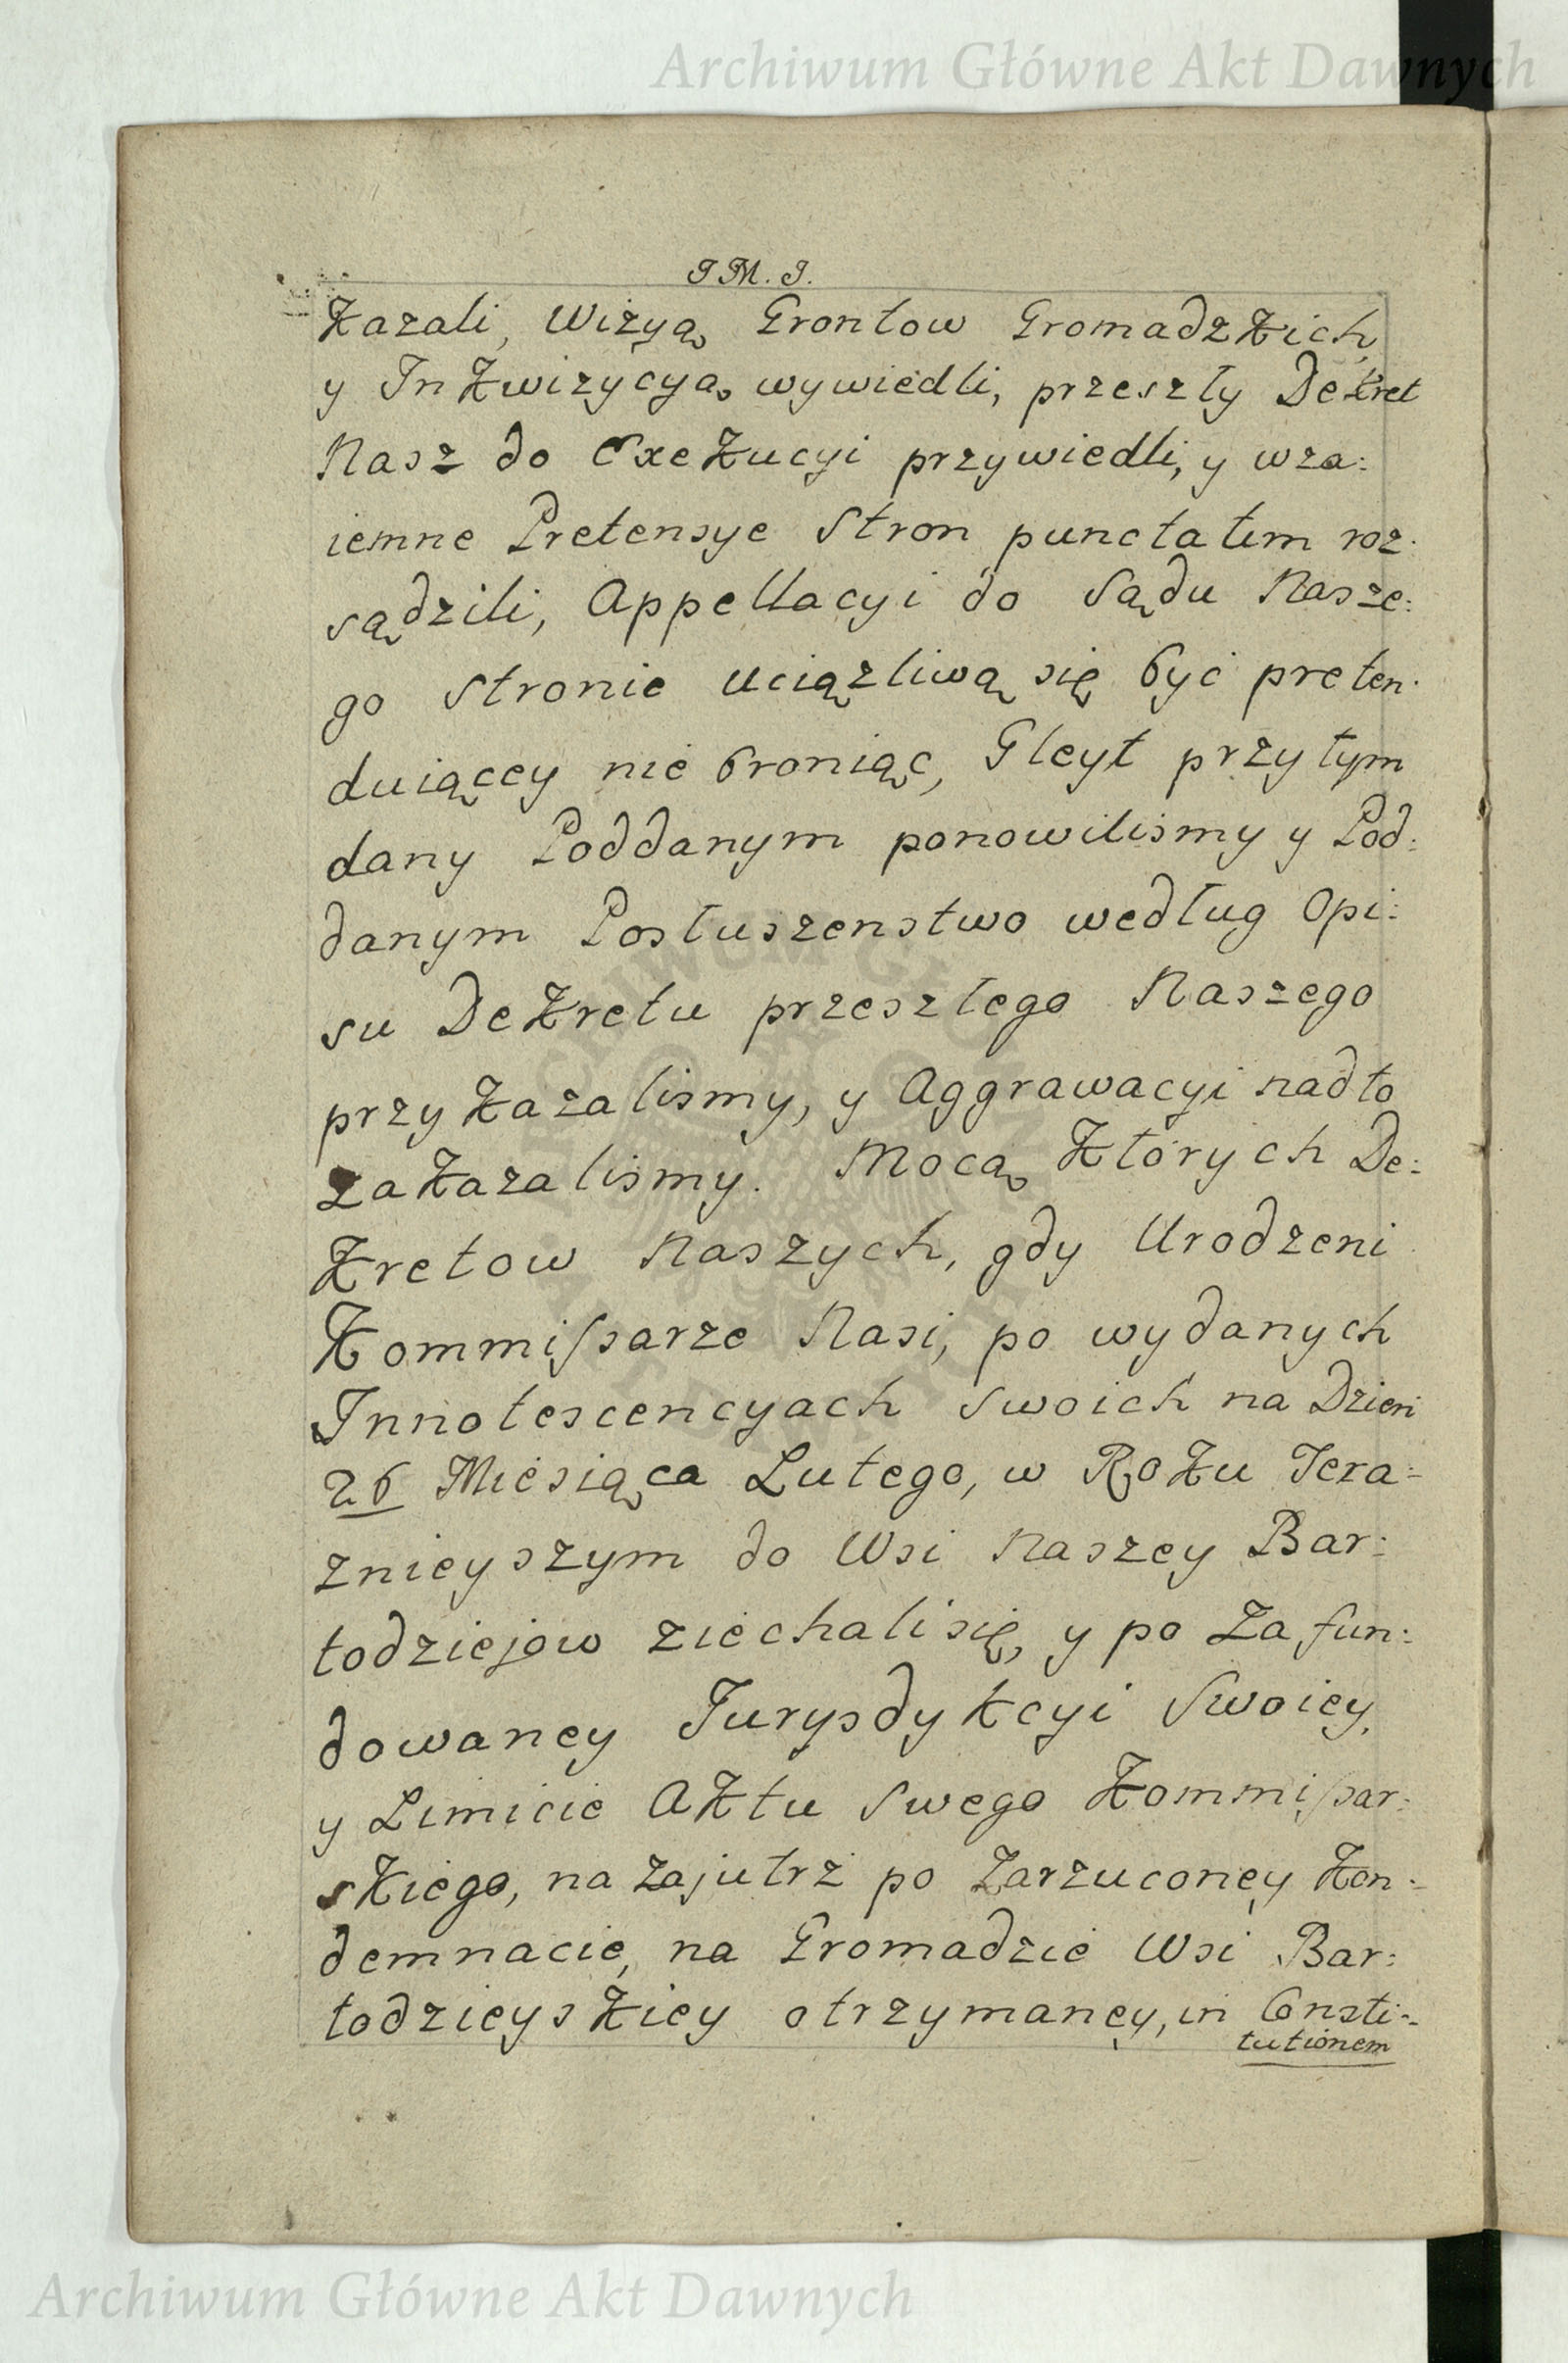 Archiwum Główne Akt Dawnych
J M. J.
kazali, Wizyą Grontow Gromadzkich
y Inkwizycyą wywiedli, przeszły Dekret
Nasz do Exekucyi przywiedli, y wza:
iemne Pretensye Stron punctatim roz:
sądzili, Appellacyi do Sądu Nasze:
go Stronie uciązliwą się być preten:
duiącey nie broniąc, Gleyt przytym
dany Poddanym ponowilismy y Pod:
danym Posłuszenstwo według Opi:
su Dekretu przeszłego Naszego
przykazalismy, y Aggrawacyi nadto
zakazalismy. Mocą ktorych De:
kretow Naszych, gdy Urodzeni
Kommissarze Nasi, po wydanych
Innotescencyach swoich na Dzien
26 Miesiąca Lutego, w Roku Tera:
znieyszym do Wsi Naszey Bar:
todziejow ziechali się, y po Zafun:
dowaney Jurysdykcyi Swoiey,
y Limicie Aktu Swego Kommissar:
skiego, na zajutrz po Zarzuconey Kon:
demnacie, na Gromadzie Wsi Bar:
todzieyskiey otrzymaney, in Consti:
tutionem
Archiwum Główne Akt Dawnych